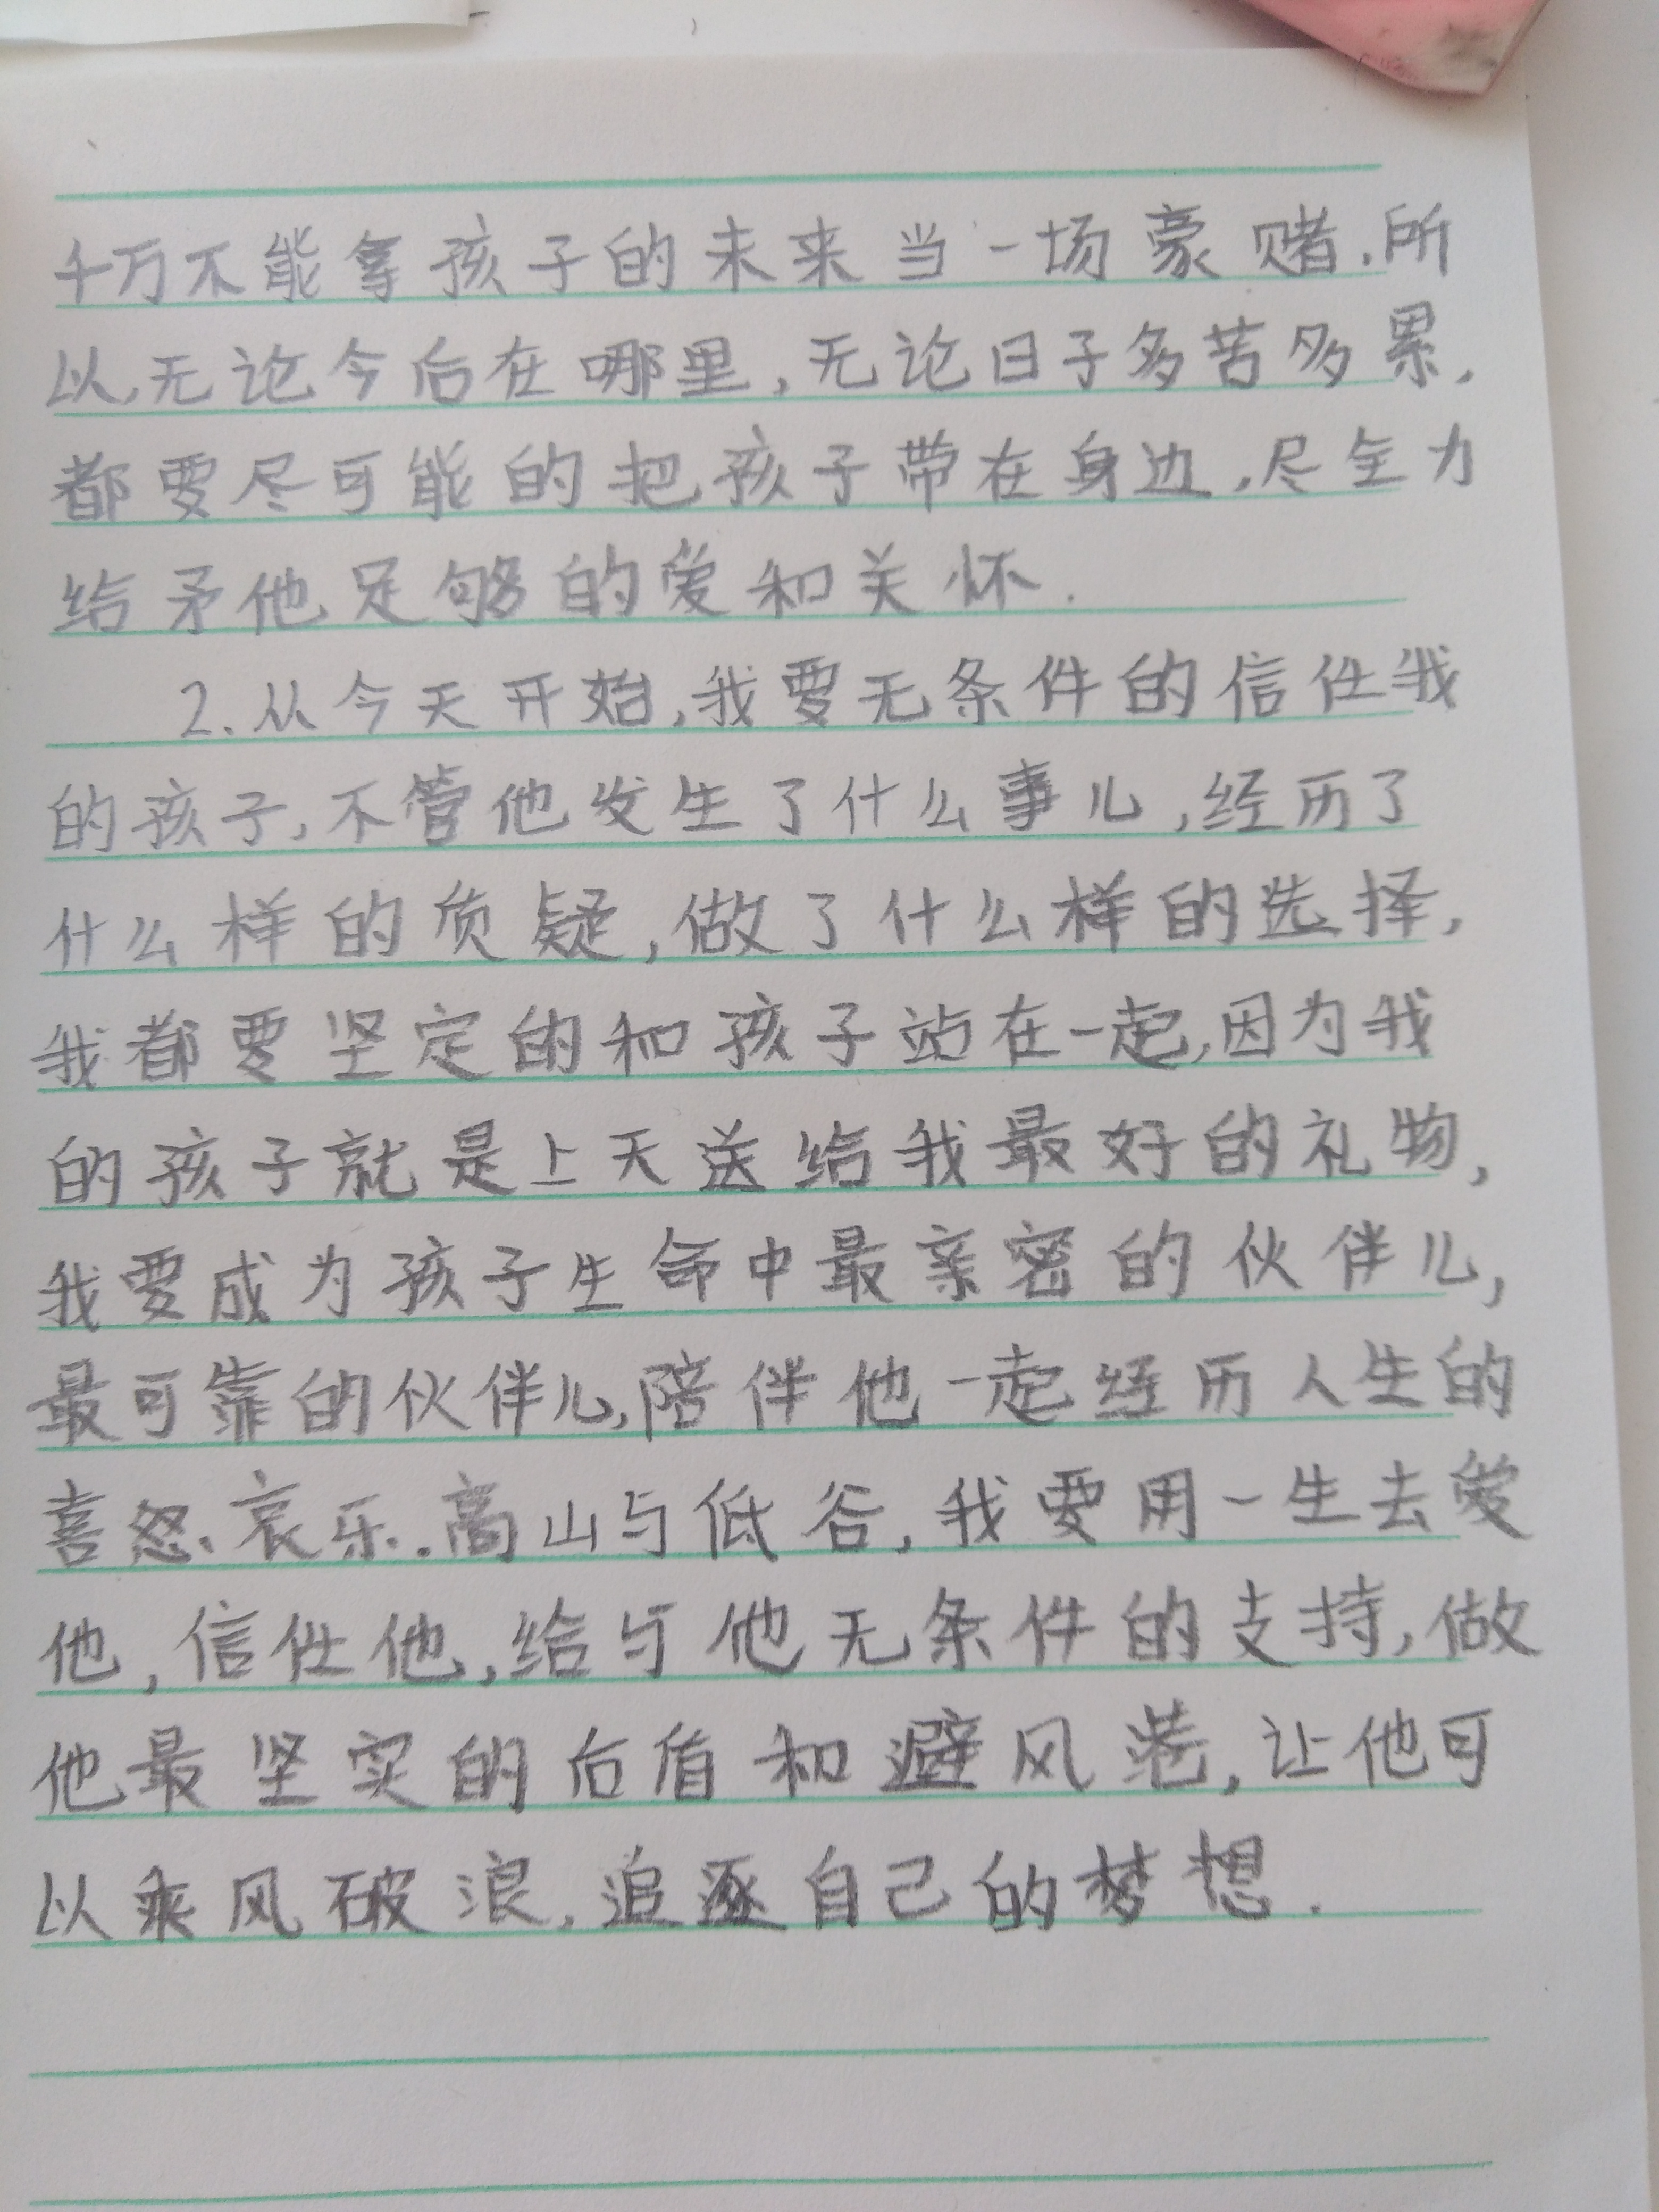 千万不能拿孩子的未来当一场豪赌.所
以,无论今后在哪里,无论日子多苦多累,
都要尽可能的把孩子带在身边,尽全力
给矛他足够的爱和关怀.
2.从今天开始,我要无条件的信任我
的孩子,不管他发生了什么事儿,经历了
什么样的质疑,做了什么样的选择,
我都要坚定的和孩子站在一起,因为我
的孩子就是上天送给我最好的礼物,
我要成为孩子生命中最亲密的伙伴儿,
最可靠的伙伴儿,陪伴他一起经历人生的
喜怒、哀乐.高山与低谷,我要用一生去爱
他,信任他,给与他无条件的支持,做
他最坚实的后盾和避风港,让他可
以乘风破浪,追逐自己的梦想.